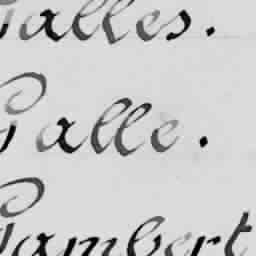 Galles.
Galle.
Gambert